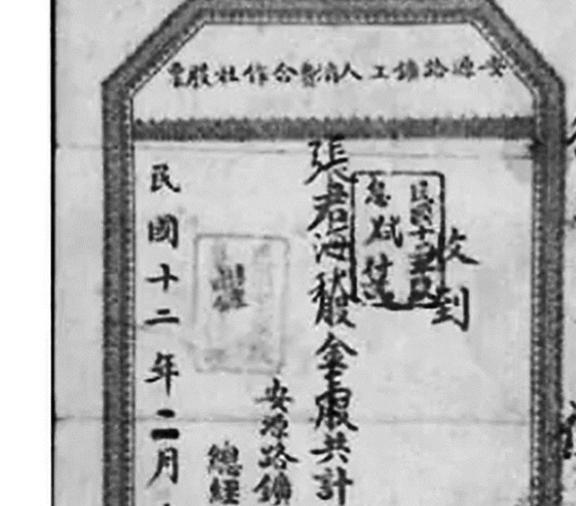 安源路鑛工人消費合作社股票
收到
民國十
息
付
張君海股金壹股共計
安源路鑛
總經
民國十二年二月